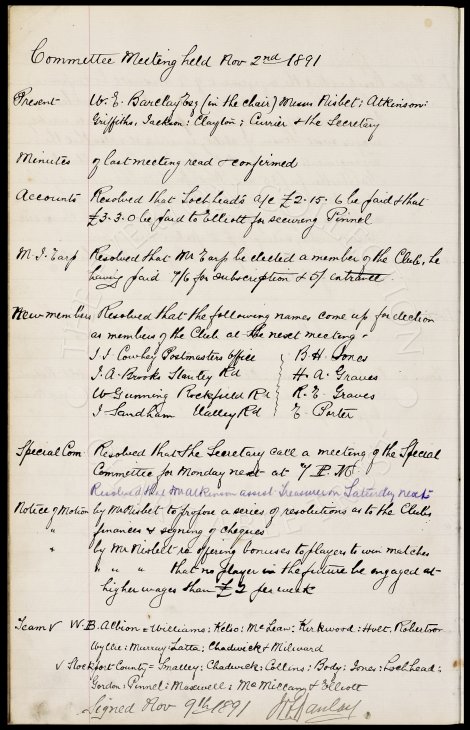 Committee Meeting held Nov 2nd 1891
Present W. E. Barclay Esq (in the chair) Messrs Nisbet: Atkinson:
Griffiths, Jackson: Clayton: Currier & the Secretary
Minutes of last meeting read & confirmed
Accounts Resolved that Lochhead's a/c £2.15.6 be paid & that
£3.3.0 be paid to Elliott for securing Pinnel
M. J. Earp Resolved that Mr Earp be elected a member of the Club, he
having paid 7/6 for subscription & 5/ entrance
New members Resolved that the following names come up for election
as members of the Club at the next meeting.
J J Cowley Postmasters Office B. H. Jones
J. A. Brooks Stanley Rd H. A. Graves
W Gunning Rockfield Rd R. E. Graves
J Sandham Walley Rd E. Porter
Special Com Resolved that the Secretary call a meeting of the Special
Committee for Monday next at 7 P.M.
Resolved that Mr Atkinson assist Treasurer on Saturday next
Notice of Motion by Mr Nisbet to propose a series of resolutions as to the Clubs
" finances & signing of cheques
" by Mr Nisbet re offering bonuses to players to win matches
" " " that no player in the future be engaged at
higher wages than £3 per week
Team v W. B. Albion = Williams: Kelso: McLean: Kirkwood: Holt, Robertson
Wyllie: Murray: Latta: Chadwick & Milward
v Stockport County = Smalley: Chadwick: Collins: Body: Jones: Lochhead:
Gordon: Pinnel: Maxwell: McMillan & Elliott
Signed Nov 9th 1891